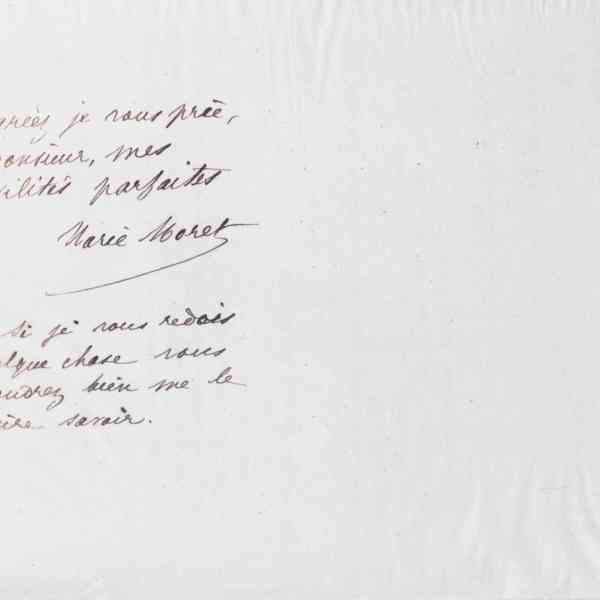 gréez je vous prie,
onsieur, mes
ilités parfaites
Marie Moret
Si je vous redois
elque chose vous
oudrez bien me le
ire savoir.